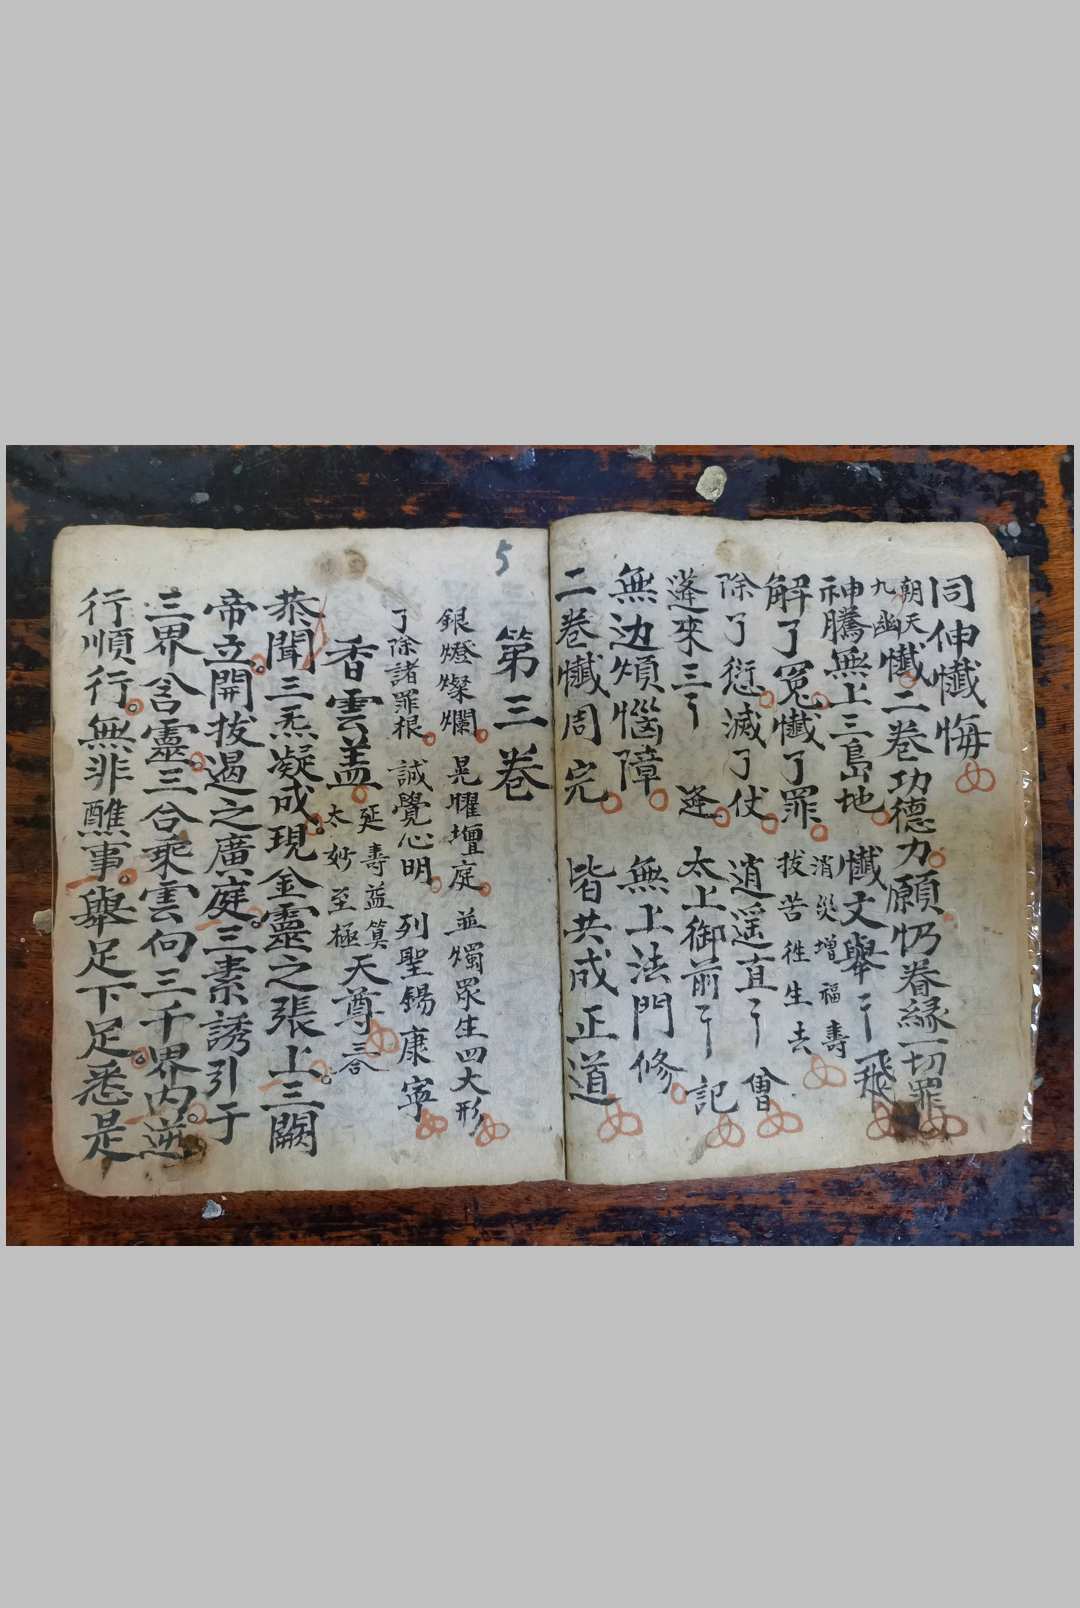 同伸懺悔
朝天九幽懺二卷功德力願仍眷緣一切罪
神騰無上三島地 懺文舉〻飛
解了冤懺了罪 消災增福壽 拔苦徃生去
除了愆滅了仗 逍遥直〻會
蓬來三〻 逄 太上御前〻 記
無边煩惱障 無上法門修
二卷懺周完 皆共成正道
5
第三卷
銀燈燦爛 晃耀壇庭 並燭眾生四大形
了除諸罪根 誠覺心明 列聖錫康寧
香雲盖 延壽益筭 太妙至極 天尊 三合
恭聞三炁凝成現金靈之張上三闕
帝立開拔遏之廣庭三素誘引于
三界含靈三合乘雲向三千界内逆
行順行無非醮事舉足下足悉是